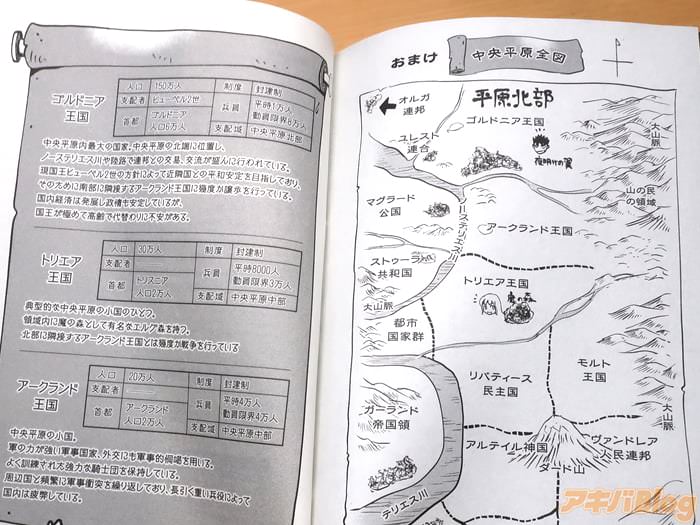 ゴルドニア
王国
人口 150万人 制度 封建制
支配者 ヒューベル2世 兵員 平時1万人
動員限界6万人
首都 ゴルドニア
人口6万人 支配域 中央平原北部
中央平原内最大の国家。中央平原の北端に位置し、
ノーステリエス川や陸路で連邦との交易、交流が盛んに行われている。
現国王ヒューベル2世の方針によって近隣国との平和安定を目指しており、
そのために南部に隣接するアークランド王国に幾度か譲歩を行っている。
国内経済は発展し政情も安定しているが、
国王が極めて高齢で代替わりに不安がある。
トリエア
王国
人口 30万人 制度 封建制
支配者 兵員 平時8000人
動員限界3万人
首都 トリスニア
人口2万人 支配域 中央平原中部
典型的な中央平原の小国のひとつ。
領域内に魔の森として有名なエルグ森を持つ。
北部に隣接するアークランド王国とは幾度か戦争を行っている
アークランド
王国
人口 20万人 制度 封建制
支配者 兵員 平時4万人
動員限界4万人
首都 アークランド
人口2万人 支配域 中央平原中部
中央平原の小国。
軍の力が強い軍事国家、外交にも軍事的恫喝を用いる。
よく訓練された強力な騎士団を保持している。
周辺国と頻繁に軍事衝突を繰り返しており、長引く重い兵役によって
国内は疲弊している。
おまけ 中央平原全図
オルガ
連邦
平原北部
ゴルドニア王国
ユレスト
連合
夜明けの翼
大山脈
山の民
の領域
マグラード
公国
ノーステリエス川
アークランド王国
ストゥーラ
共和国
トリエア王国
魔の森
大山脈
都市
国家群
リバティース
民主国
モルト
王国
ガーランド
帝国領
大山脈
アルテイル神国
ヴァンドレア
人民連邦
ダード山
テリエス川
アキバBlog